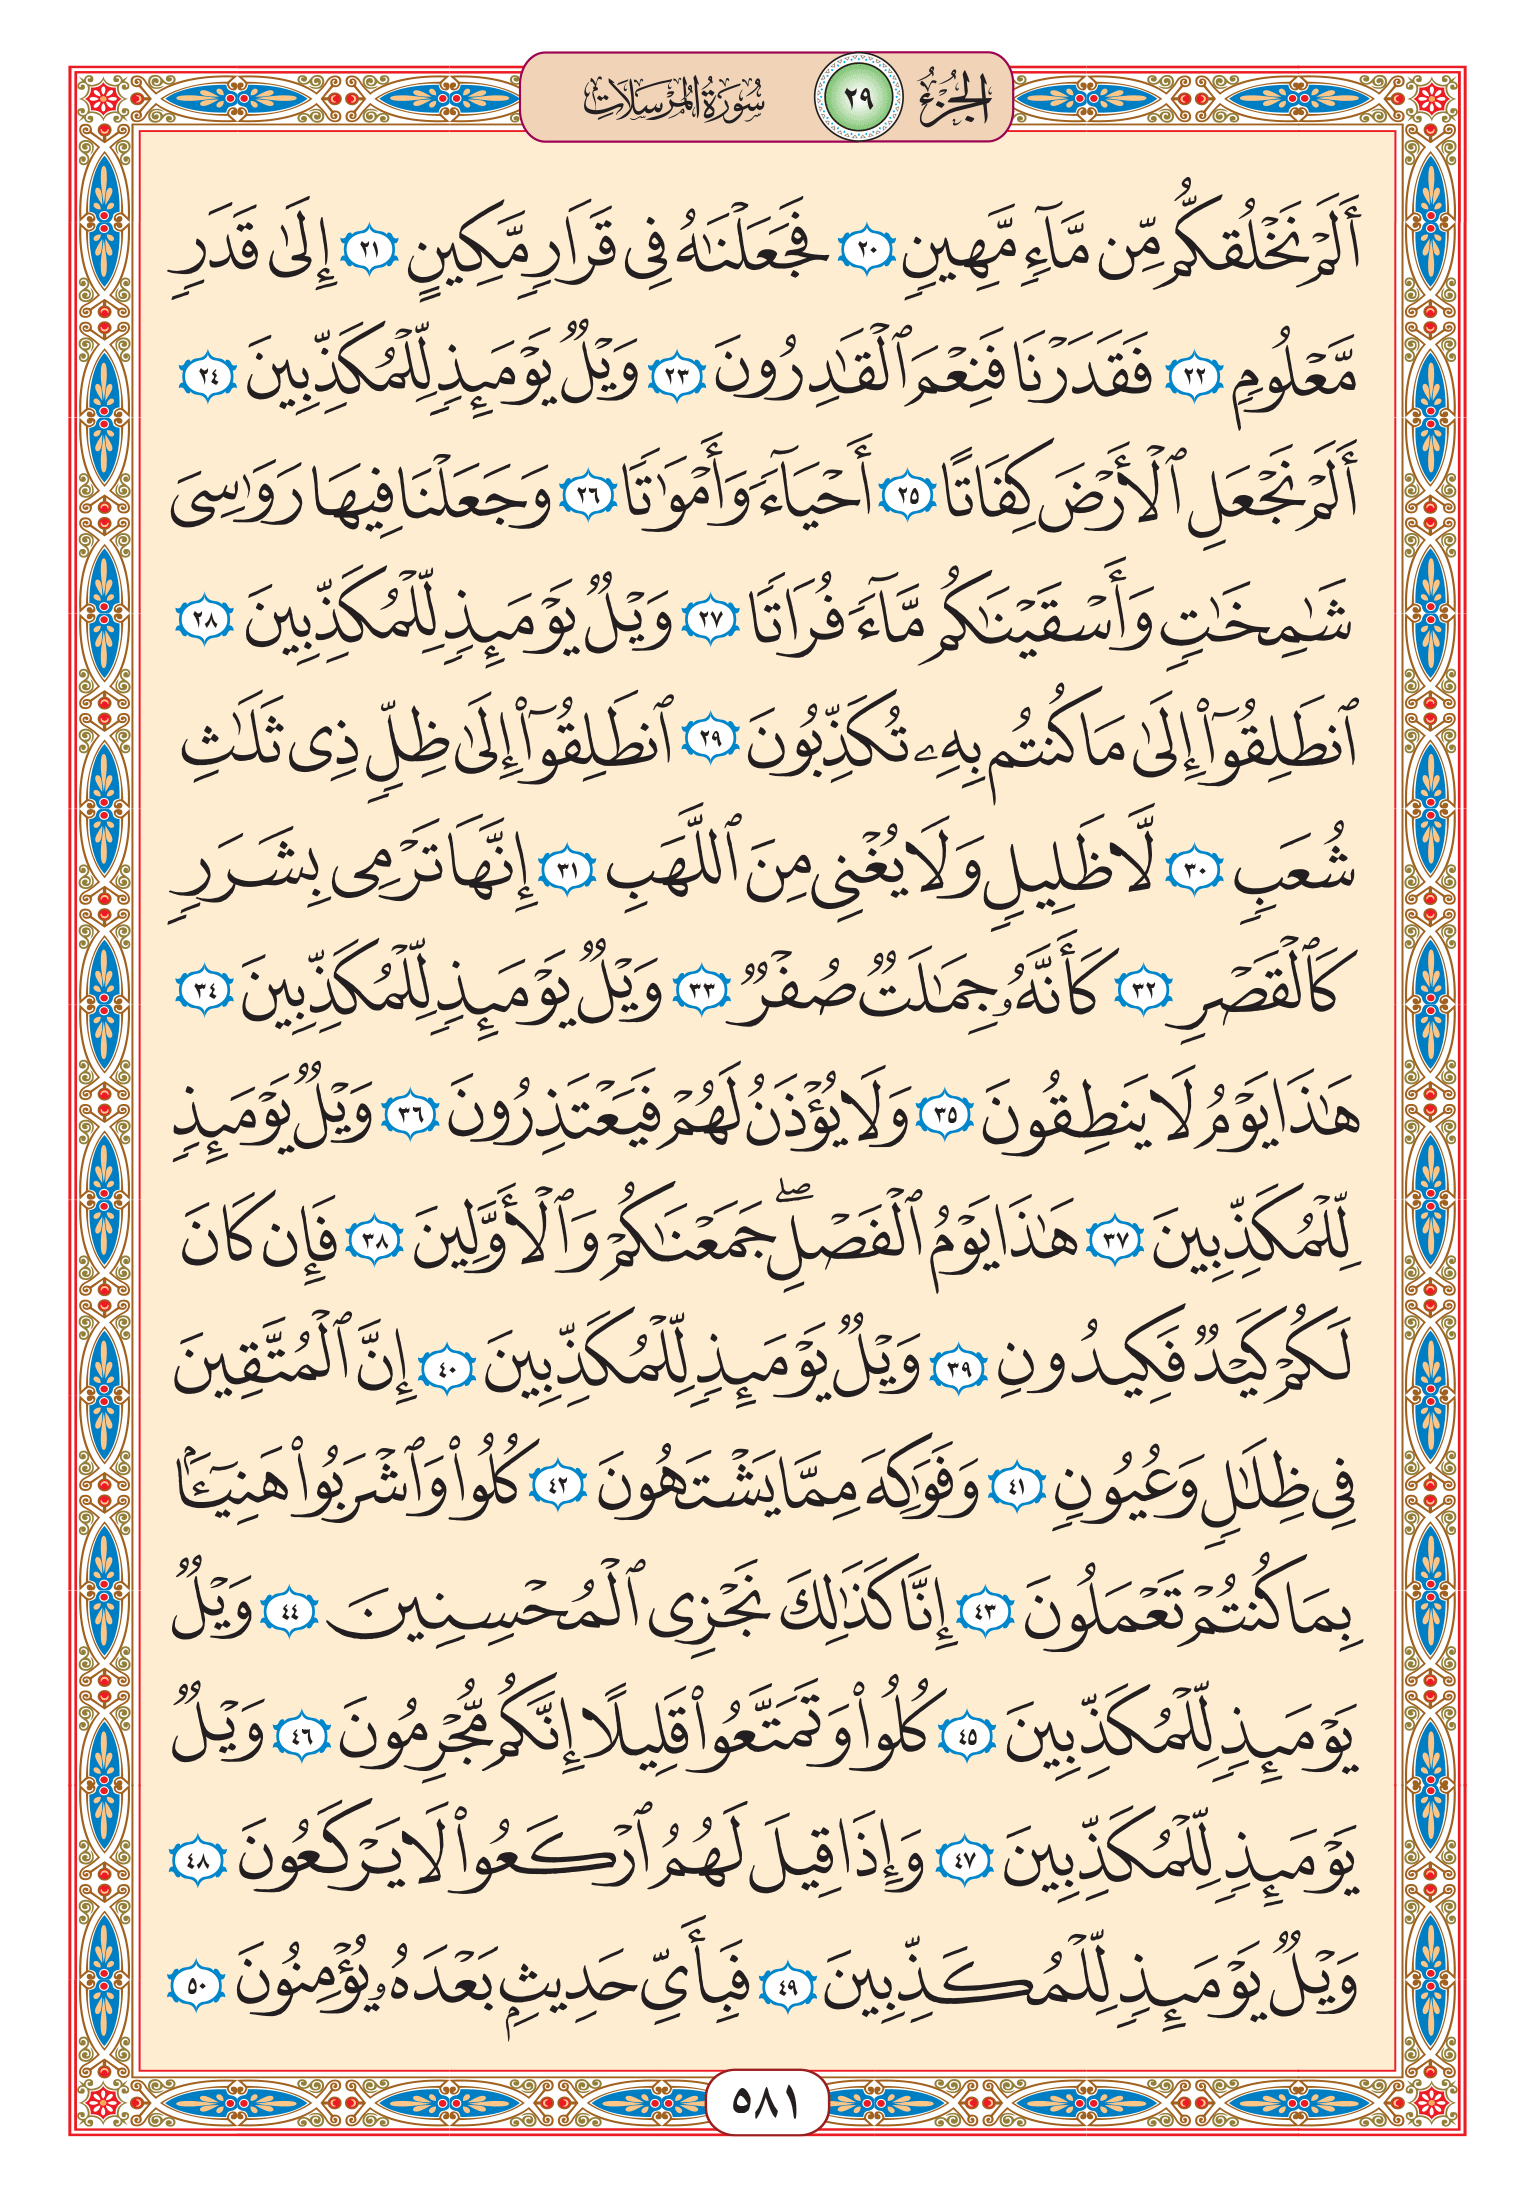 الجزء ٢٩ سورة المرسلات
أَلَمۡ نَخۡلُقكُّم مِّن مَّآءٖ مَّهِينٖ ٢٠ فَجَعَلۡنَٰهُ فِي قَرَارٖ مَّكِينٍ ٢١ إِلَىٰ قَدَرٖ
مَّعۡلُومٖ ٢٢ فَقَدَرۡنَا فَنِعۡمَ ٱلۡقَٰدِرُونَ ٢٣ وَيۡلٞ يَوۡمَئِذٖ لِّلۡمُكَذِّبِينَ ٢٤
أَلَمۡ نَجۡعَلِ ٱلۡأَرۡضَ كِفَاتًا ٢٥ أَحۡيَآءٗ وَأَمۡوَٰتٗا ٢٦ وَجَعَلۡنَا فِيهَا رَوَٰسِيَ
شَٰمِخَٰتٖ وَأَسۡقَيۡنَٰكُم مَّآءٗ فُرَاتٗا ٢٧ وَيۡلٞ يَوۡمَئِذٖ لِّلۡمُكَذِّبِينَ ٢٨
ٱنطَلِقُوٓاْ إِلَىٰ مَا كُنتُم بِهِۦ تُكَذِّبُونَ ٢٩ ٱنطَلِقُوٓاْ إِلَىٰ ظِلّٖ ذِي ثَلَٰثِ
شُعَبٖ ٣٠ لَّا ظَلِيلٖ وَلَا يُغۡنِي مِنَ ٱللَّهَبِ ٣١ إِنَّهَا تَرۡمِي بِشَرَرٖ
كَٱلۡقَصۡرِ ٣٢ كَأَنَّهُۥ جِمَٰلَتٞ صُفۡرٞ ٣٣ وَيۡلٞ يَوۡمَئِذٖ لِّلۡمُكَذِّبِينَ ٣٤
هَٰذَا يَوۡمُ لَا يَنطِقُونَ ٣٥ وَلَا يُؤۡذَنُ لَهُمۡ فَيَعۡتَذِرُونَ ٣٦ وَيۡلٞ يَوۡمَئِذٖ
لِّلۡمُكَذِّبِينَ ٣٧ هَٰذَا يَوۡمُ ٱلۡفَصۡلِۖ جَمَعۡنَٰكُمۡ وَٱلۡأَوَّلِينَ ٣٨ فَإِن كَانَ
لَكُمۡ كَيۡدٞ فَكِيدُونِ ٣٩ وَيۡلٞ يَوۡمَئِذٖ لِّلۡمُكَذِّبِينَ ٤٠ إِنَّ ٱلۡمُتَّقِينَ
فِي ظِلَٰلٖ وَعُيُونٖ ٤١ وَفَوَٰكِهَ مِمَّا يَشۡتَهُونَ ٤٢ كُلُواْ وَٱشۡرَبُواْ هَنِيٓـَٔۢا
بِمَا كُنتُمۡ تَعۡمَلُونَ ٤٣ إِنَّا كَذَٰلِكَ نَجۡزِي ٱلۡمُحۡسِنِينَ ٤٤ وَيۡلٞ
يَوۡمَئِذٖ لِّلۡمُكَذِّبِينَ ٤٥ كُلُواْ وَتَمَتَّعُواْ قَلِيلًا إِنَّكُم مُّجۡرِمُونَ ٤٦ وَيۡلٞ
يَوۡمَئِذٖ لِّلۡمُكَذِّبِينَ ٤٧ وَإِذَا قِيلَ لَهُمُ ٱرۡكَعُواْ لَا يَرۡكَعُونَ ٤٨
وَيۡلٞ يَوۡمَئِذٖ لِّلۡمُكَذِّبِينَ ٤٩ فَبِأَيِّ حَدِيثِۭ بَعۡدَهُۥ يُؤۡمِنُونَ ٥٠
٥٨١